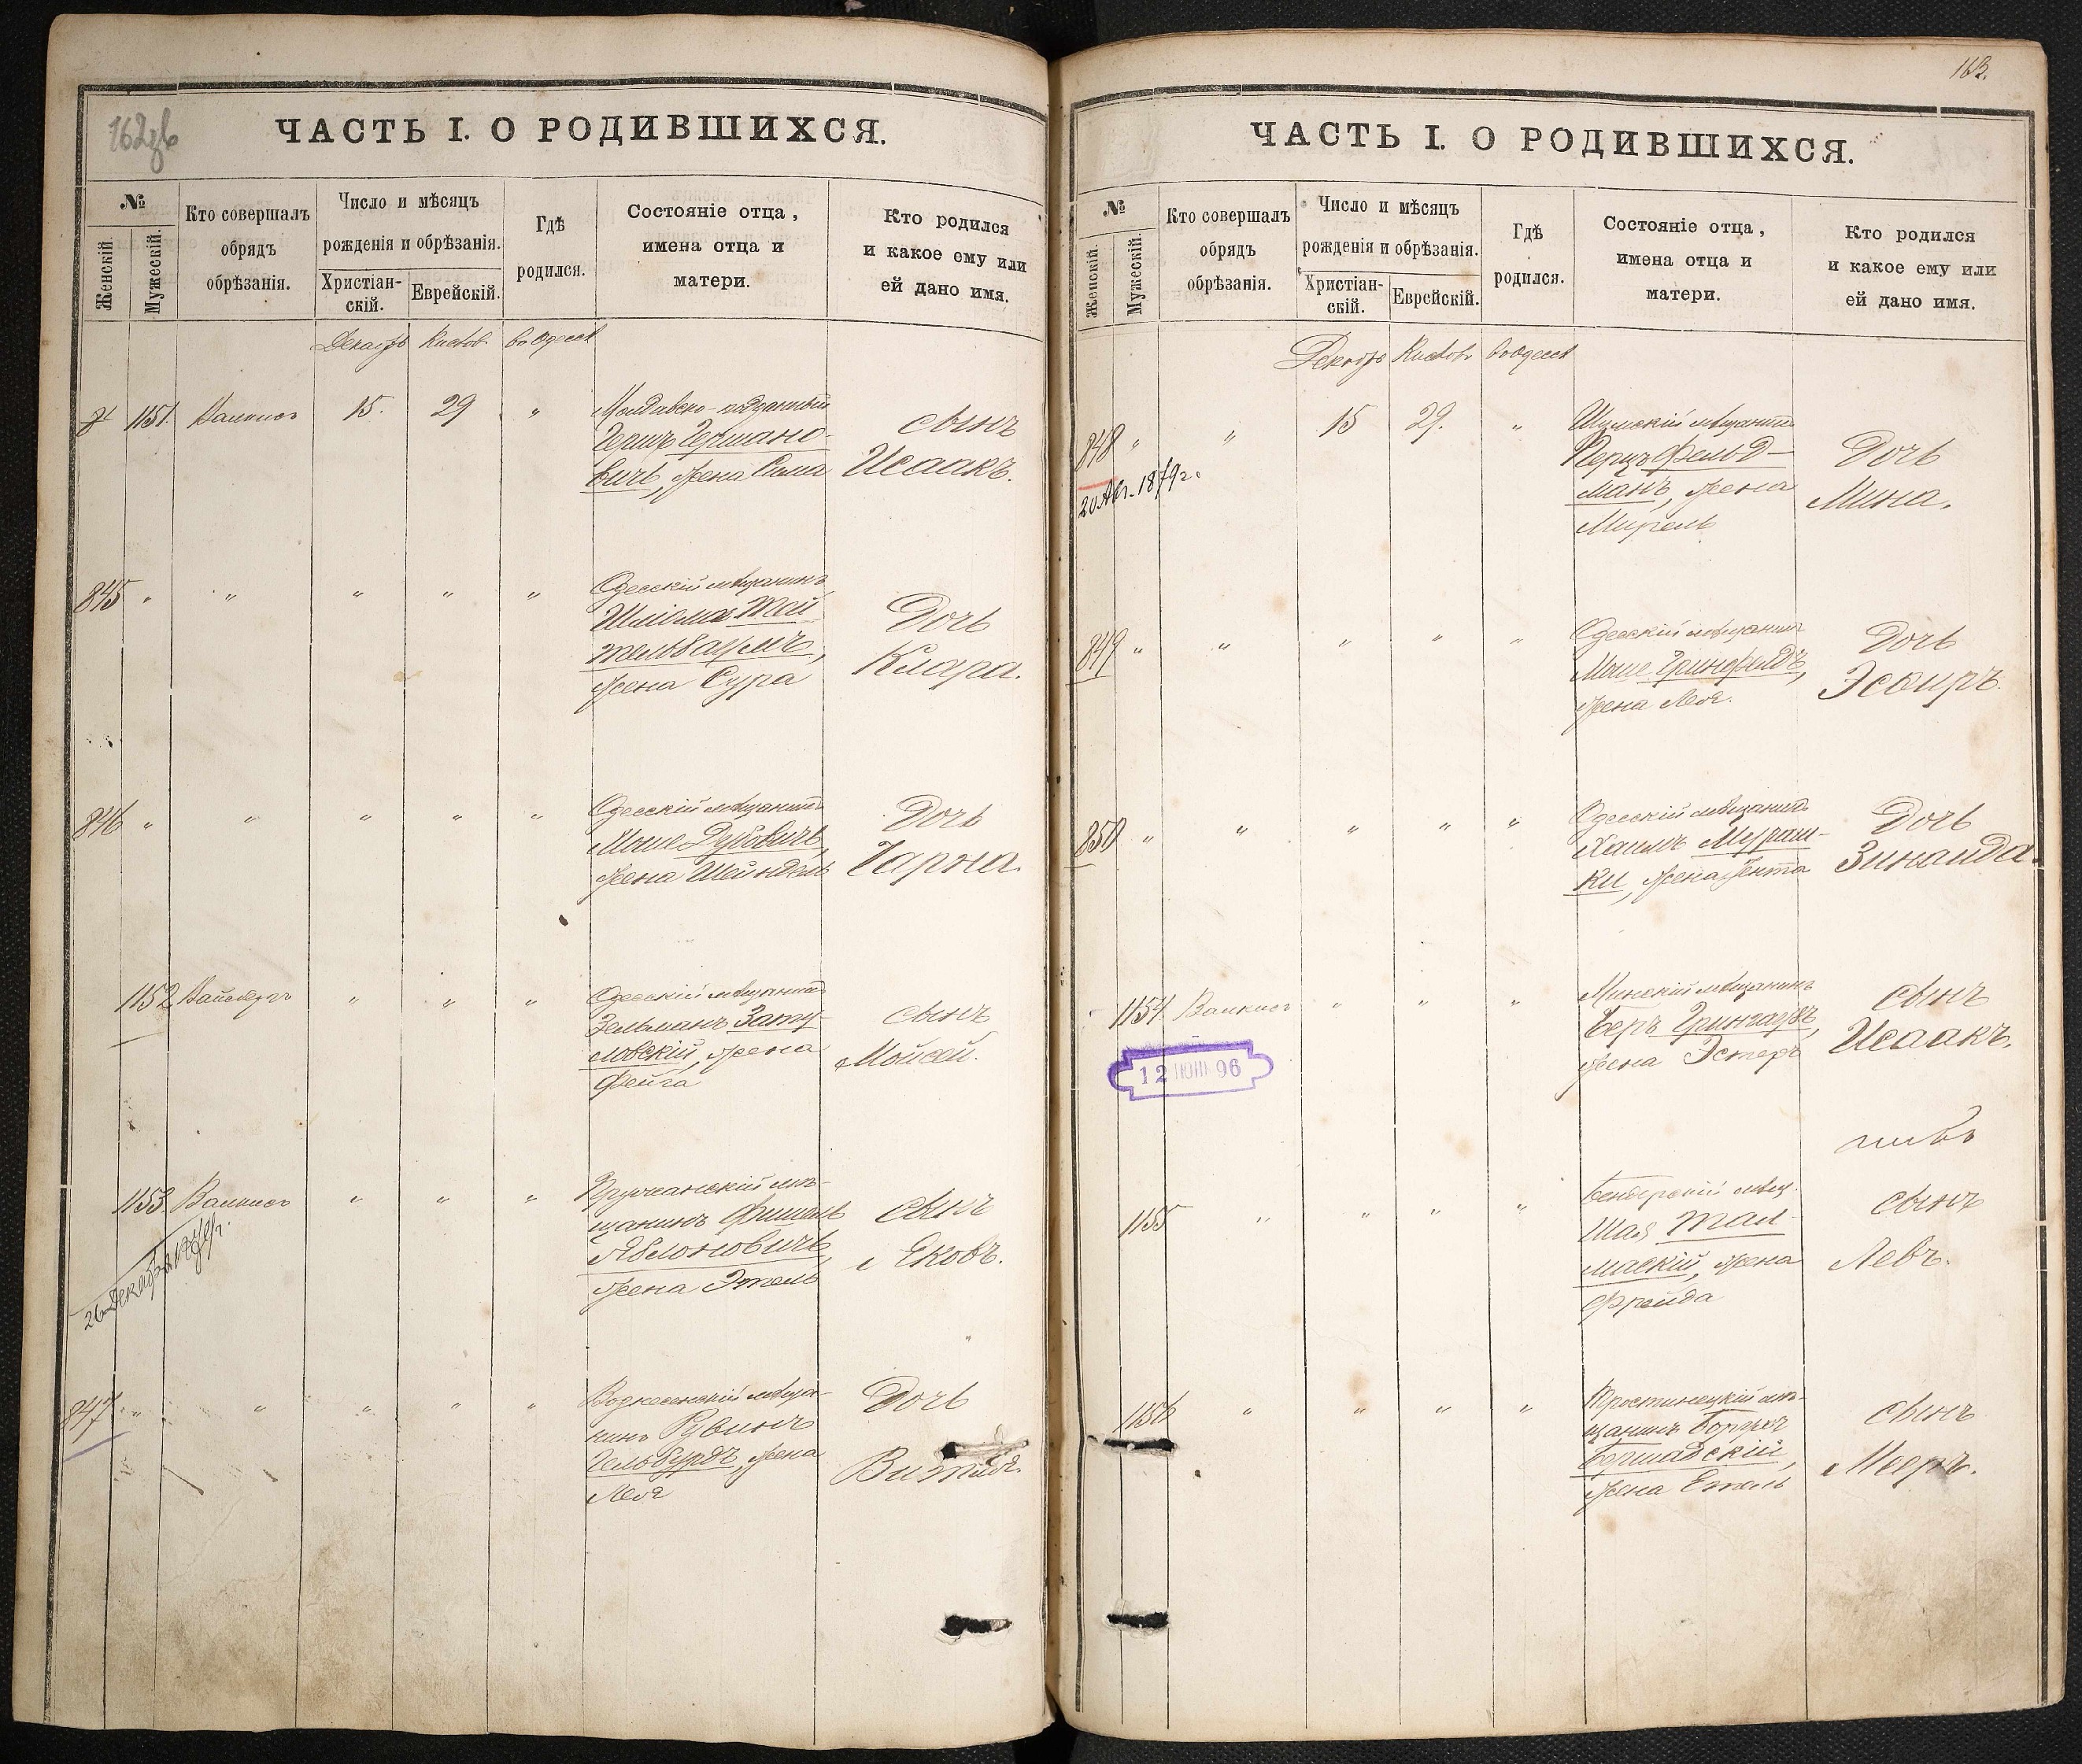 162 об
ЧАСТЬ I. О РОДИВШИХСЯ.
№
Женскій.
Мужескій.
Кто совершалъ
обрядъ
обрѣзанія.
Число и мѣсяцъ
рожденія и обрѣзанія.
Христіан-
скій.
Еврейскій.
Гдѣ
родился.
Состояніе отца,
имена отца и
матери.
Кто родился
и какое ему или
ей дано имя.
Декабрь Кислов. въ Одессѣ
1151. 15. 29 "
Молдавско-подданный
Гершъ Германо-
вичъ, жена Сима
сынъ
Исаакъ.
845 " " " " "
Одесскій мѣщанинъ
Шліома Тай
тельбаумъ,
жена Сура
Дочь
Клара.
846 " " " " "
Одесскій мѣщанинъ
Мошко Дубовичъ,
жена Шейндель
Дочь
Чарна.
1152 Вайсбергъ " " "
Одесскій мѣщанинъ
Зельманъ Зату-
ловскій, жена
Фейга
сынъ
Мойсей.
1153 " " "
26 Декабря
щанинъ Фишель
Яблоновичъ,
жена Этель
сынъ
Яковъ.
847 " " " " "
Вознесенскій мѣща-
нинъ Рувинъ
Гельбурдъ, жена
Лея
Дочь
163.
ЧАСТЬ I. О РОДИВШИХСЯ.
№
Женскій.
Мужескій.
Кто совершалъ
обрядъ
обрѣзанія.
Число и мѣсяцъ
рожденія и обрѣзанія.
Христіан-
скій.
Еврейскій.
Гдѣ
родился.
Состояніе отца,
имена отца и
матери.
Кто родился
и какое ему или
ей дано имя.
Декабрь Кислов. въ Одессѣ
848 " " 15 29. "
20 Авг. 1879 г.
мѣщанинъ
Перецъ Фельд-
манъ, жена
Мирель
Дочь
Мина.
849 " " " " "
Одесскій мѣщанинъ
Моше Гринфельдъ,
жена Лея.
Дочь
Эсѳирь.
850 " " " " "
Одесскій мѣщанинъ
Хаимъ
ки, жена Ента
Дочь
Зинаида.
1154. " " "
12 ІЮН 96
Минскій мѣщанинъ
Беръ Грингаузъ,
жена Эстеръ
сынъ
Исаакъ.
1155 " " " "
Бендерскій мѣщ.
Шая Тал-
маскій, жена
Фрейда
сынъ
Левъ.
1156 " " " "
Тростинецкій мѣ-
щанинъ Борухъ
Бершадскій,
жена Етель
сынъ
Мееръ.